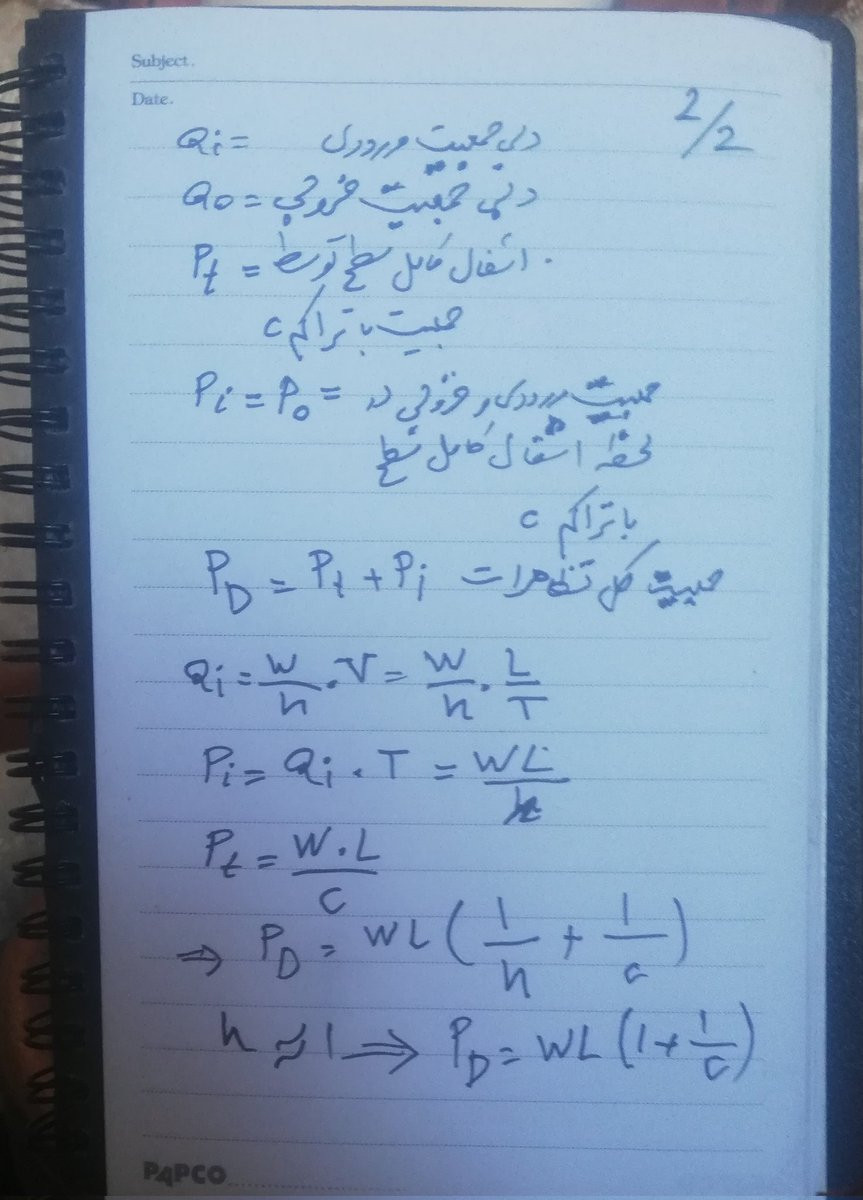 Subject.
2/2
Date.
Qi = دبی جمعیت ورودی
Qo = دبی جمعیت خروجی
Pt = اشغال کامل سطح توسط
جمعیت با تراکم c
Pi = Po = جمعیت ورودی و خروجی در
لحظه اشغال کامل سطح
با تراکم c
PD = Pt + Pi جمعیت کل تظاهرات
Qi = W/n . V = W/n . L/T
Pi = Qi . T = WL/n
Pt = W.L/c
⇒ PD = WL (1/n + 1/c)
n ≈ 1 ⇒ PD = WL (1 + 1/c)
PAPCO